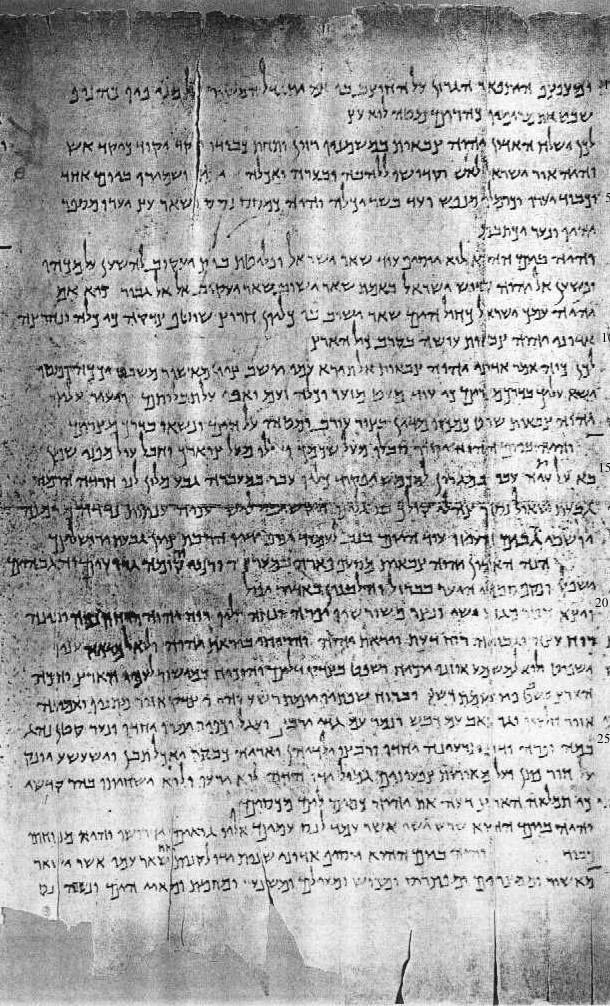 ומצפצף היתפאר הגרזן על החוצב בו אם יתגדל המשור על מניפו כהניף
שבט את מרימיו כהרים מטה לוא עץ
לכן ישלח האדון יהוה צבאות במשמניו רזון ותחת כבודו יקד יקוד כיקוד אש
והיה אור ישראל לאש וקדושו ללהבה ובערה ואכלה ושמירו ביום אחד
5 וכבוד יערו וכרמלו מנפש ועד בשר יכלה והיה ושאר עץ יערו מספר
יהיו ונער יכתבם
והיה ביום ההוא לוא יוסיף עוד שאר ישראל ופליטת בית יעקוב להשען על מכהו
ונשען אל יהוה קדוש ישראל באמת שאר ישוב שאר יעקוב אל אל גבור כיא אם
יהיה עמך ישראל כחול הים שאר ישוב בו כליון חרוץ שוטף צדקה כי כלה ונחרצה
10 אדוני יהוה צבאות עושה בקרב כול הארץ
לכן כוה אמר אדוני יהוה צבאות אל תירא עמי יושב ציון מאשור בשבט יככה ומטהו
ישא עליך בדרך מצרים כי עוד מעט מזער וכלה זעם ואפי על תבליתם ויעיר עליו
יהוה צבאות שוט כמכת מדין בצור עורב ומטהו על הים ונשאו בדרך מצרים
והיה ביום ההוא יסור סבלו מעל שכמך ועולו מעל צוארך וחבל עול מפני שמן
15 בא על עית עבר במגרון למכמש יפקיד כליו עבר במעברה גבע מלון לנו חרדה הרמה
גבעת שאול נסה צהלי קולך בת גלים הקשיבי ענתות נדדה
יושבי הגבים העיזו עוד היום בנוב לעמוד ינף ידיו הר בת ציון גבעת ירושלים
הנה האדון יהוה צבאות מסעף פארה במערצה ורמי קומה גדועים והגבהים
ישפלו ונקף סבכי היער בברזל והלבנון באדיר יפול
20 ויצא חוטר מגזע ישי ונצר משורשיו יפרה ונחה עליו רוח יהוה רוח חכמה ובינה
רוח עצה וגבורה רוח דעת ויראת יהוה והריחו ביראת יהוה ולוא למראה עיניו
ישפוט ולוא למשמע אוזניו יוכיח ושפט בצדק דלים והוכיח במישור לענוי הארץ והכה
הארץ בשבט פיו וברוח שפתיו יומת רשע והיה צדק אזור מתניו ואמונה
אזור חלציו וגר זאב עם כבש ונמר עם גדי ירבץ ועגל וכפיר ימרו יחדו ונער קטן נהג
25 במה ופרה ודוב תרעינה יחדו ורבצו ילדיהן ואריה כבקר יואכל תבן ושעשע יונק
על חור פתן ועל מאורות צפעונים גמול ידו הדה לוא ירעו ולוא ישחיתו בהר קדשי
כי תמלאה הארץ דעה את יהוה כמים לים מכסים
והיה ביום ההוא שורש ישי אשר עמד לנס עמים אליו גואים ידרושו והיה מנוחתו
כבוד והיה ביום ההוא יוסיף אדוני שנית ידו לקנות את שאר עמו אשר ישאר
מאשור וממצרים ומפתרוס ומכוש ומעילם ומשנער ומחמת ומאיי הים ונשא נס